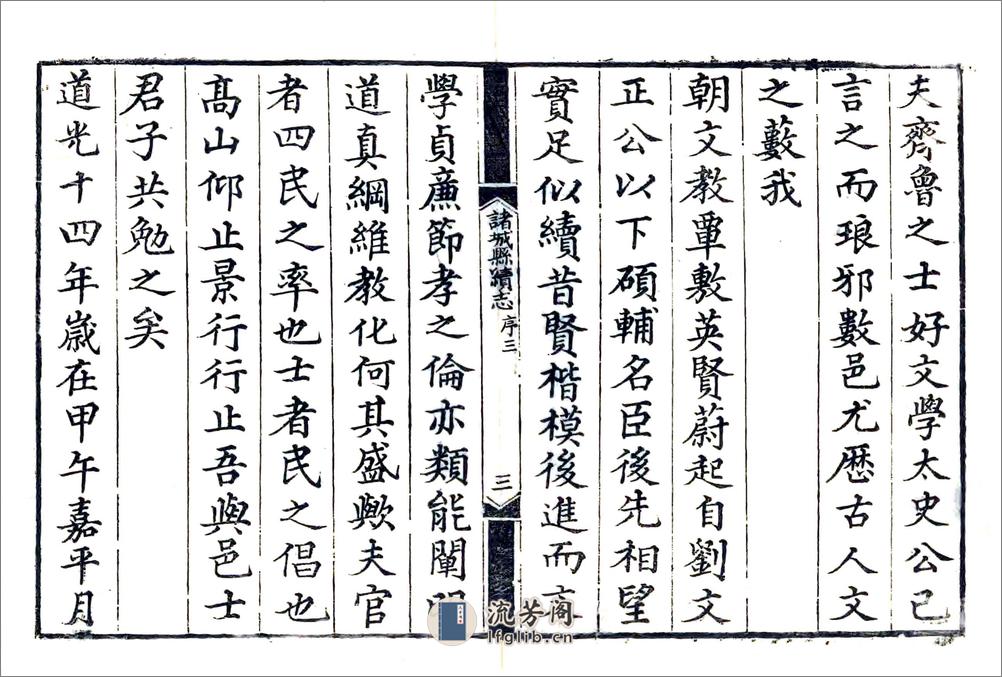 夫齊魯之士好文學太史公已
言之而琅邪數邑尤厯古人文
之藪我
朝文教覃敷英賢蔚起自劉文
正公以下碩輔名臣後先相望
實足似續昔賢楷模後進而
諸城縣續志 序三 三
學貞廉節孝之倫亦類能闡明
道真綱維教化何其盛歟夫官
者四民之率也士者民之倡也
髙山仰止景行行止吾與邑士
君子共勉之矣
道光十四年歲在甲午嘉平月
流芳阁
lfglib.cn